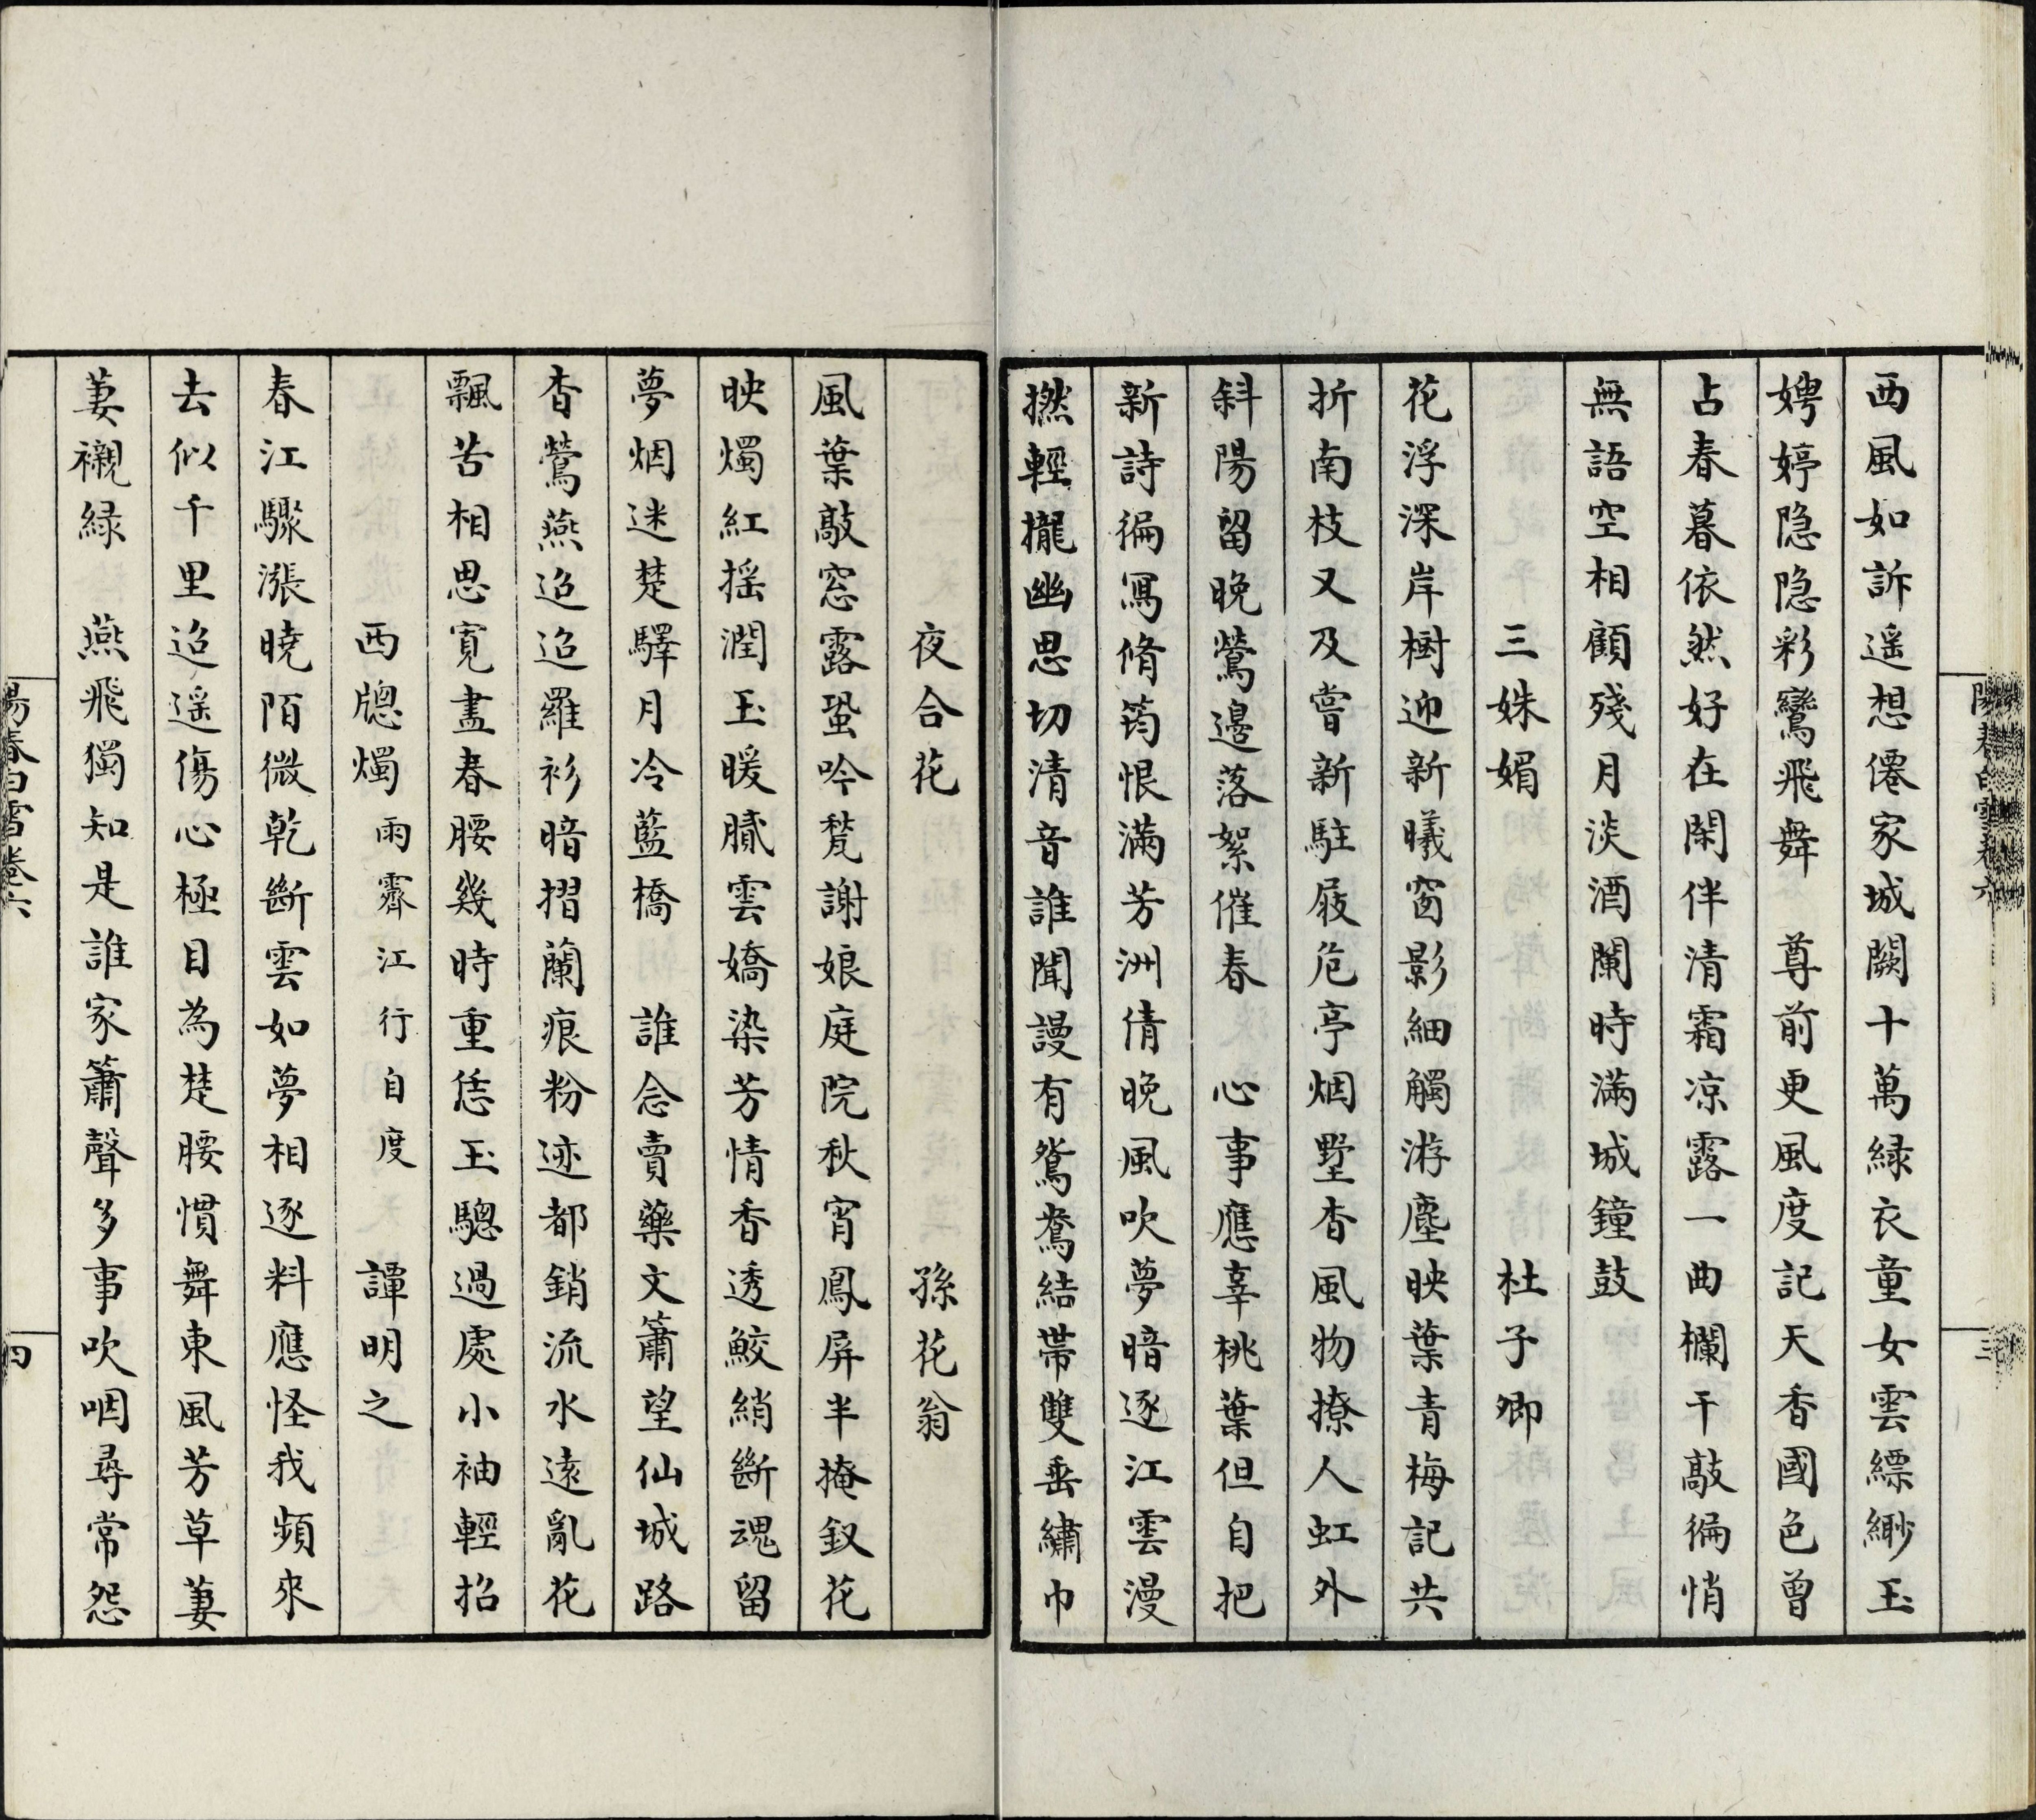 陽春白雪卷六 三
西風如訴遥想僊家城闕十萬緑衣童女雲縹緲玉
娉婷隐隐彩鸞飛舞　尊前更風度記天香國色曾
占春暮依然好在閑伴清霜凉露一曲欄干敲徧悄
無語空相顧殘月淡酒闌時滿城鐘鼓
三姝媚　杜子卿
花浮深岸樹迎新曦窗影細觸游塵映葉青梅記共
折南枝又及嘗新駐屐危亭烟墅杳風物撩人虹外
斜陽留晚鶯邊落絮催春　心事應辜桃葉但自把
新詩徧寫脩筠恨滿芳洲倩晚風吹夢暗逐江雲漫
撚輕攏幽思切清音誰聞謾有鴛鴦結帶雙垂繡巾
夜合花　孫花翁
風葉敲窓露蛩吟甃謝娘庭院秋宵鳳屏半掩釵花
映燭紅摇潤玉暖膩雲嬌染芳情香透鮫綃斷魂留
夢烟迷楚驛月冷藍橋　誰念賣藥文簫望仙城路
杳鶯燕迢迢羅衫暗摺蘭痕粉迹都銷流水遠亂花
飄苦相思寛盡春腰幾時重恁玉驄過處小袖輕招
西牕燭 雨霽江行自度　譚明之
春江驟漲曉陌微乾斷雲如夢相逐料應怪我頻來
去似千里迢遥傷心極目為楚腰慣舞東風芳草萋
萋襯緑　燕飛獨知是誰家簫聲多事吹咽尋常怨
陽春白雪卷六 四